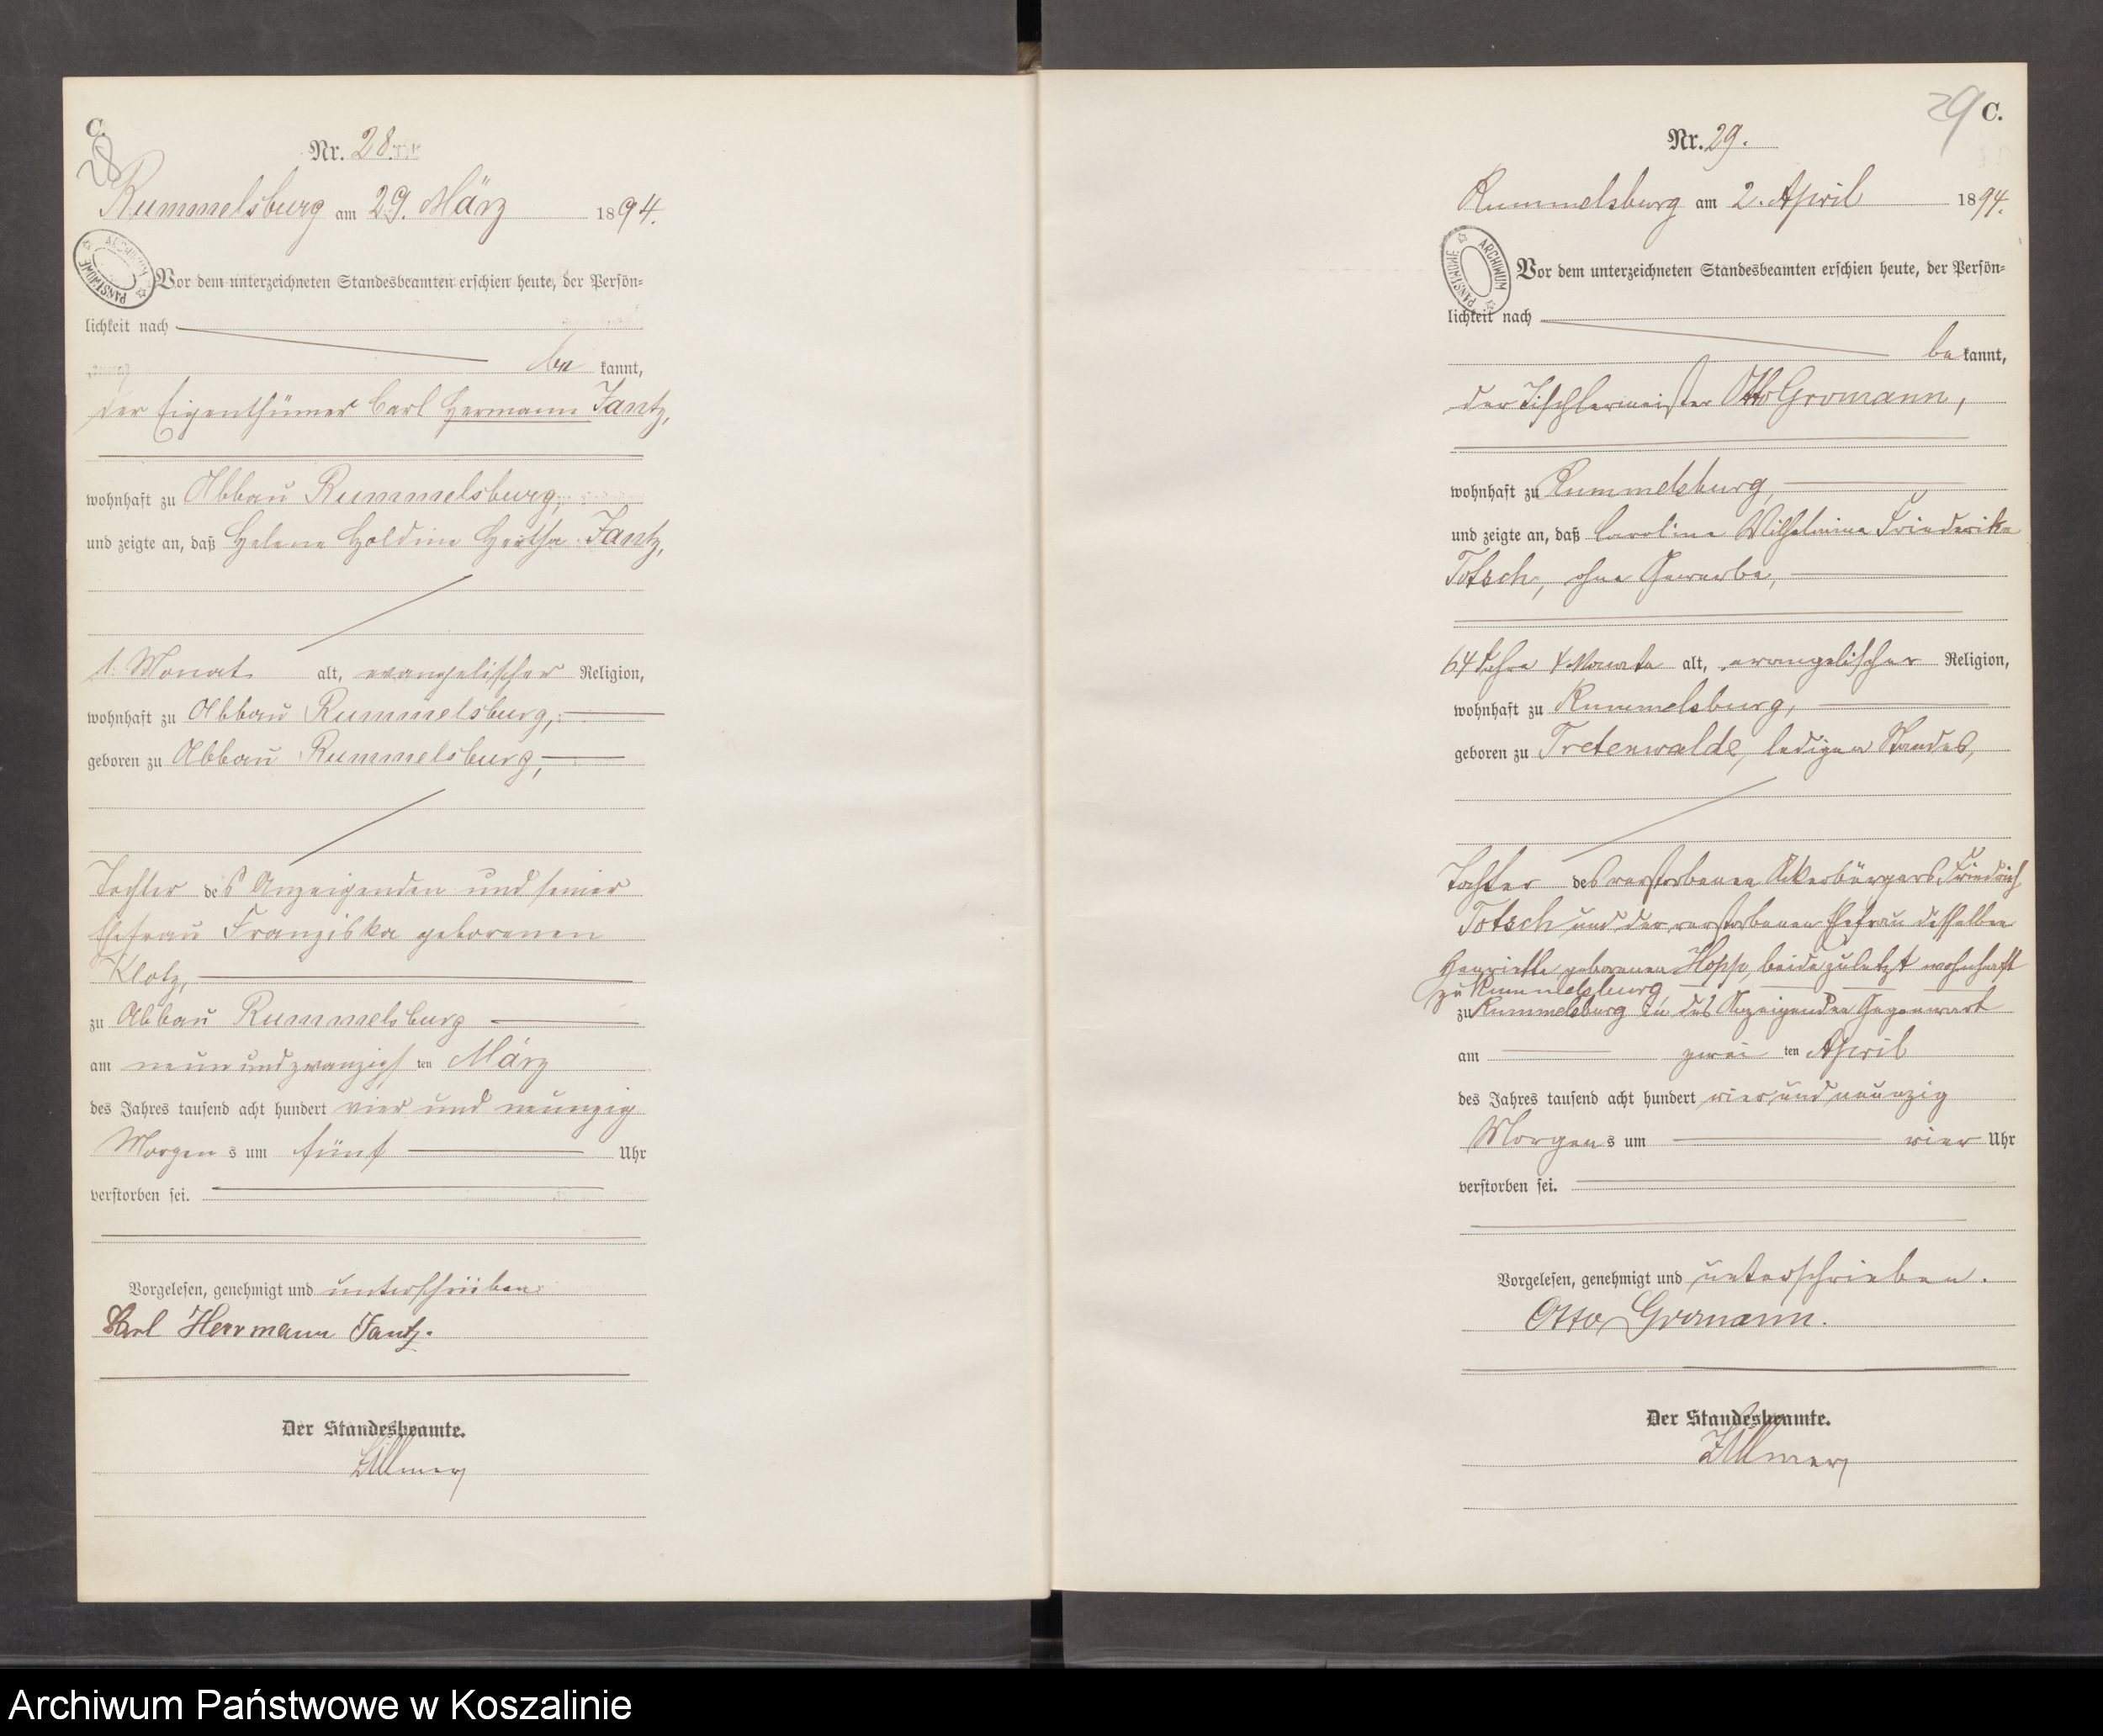 C.
28
Nr. 28.
Rummelsburg am 29. März 1894.
ARCHIWUM PAŃSTWOWE
Vor dem unterzeichneten Standesbeamten erschien heute, der Persön-
lichkeit nach
be kannt,
der Eigenthümer Carl Hermann Jantz,
wohnhaft zu Abbau Rummelsburg,
und zeigte an, daß Helene Holdine Hertha Jantz,
1 Monat alt, evangelischer Religion,
wohnhaft zu Abbau Rummelsburg,
geboren zu Abbau Rummelsburg,
Tochter des Anzeigenden und seiner
Ehefrau Franziska geborenen
Klotz,
zu Abbau Rummelsburg
am neunundzwanzigs ten März
des Jahres tausend acht hundert vier und neunzig
Morgen s um fünf Uhr
verstorben sei.
Vorgelesen, genehmigt und unterschrieben
Carl Herrmann Jantz.
Der Standesbeamte.
29 C.
Nr. 29.
Rummelsburg am 2. April 1894.
ARCHIWUM PAŃSTWOWE
Vor dem unterzeichneten Standesbeamten erschien heute, der Persön-
lichkeit nach
be kannt,
der Tischlermeister Otto Gromann,
wohnhaft zu Rummelsburg,
und zeigte an, daß Caroline Wilhelmine Friederike
Totsch, ohne Gewerbe,
64 Jahre Monate alt, evangelischer Religion,
wohnhaft zu Rummelsburg,
geboren zu Tretenwalde, ledigen Standes,
Tochter des verstorbenen Ackerbürgers Friedrich
Totsch und der verstorbenen Ehefrau desselben
Henriette geborenen Hopp, beide zuletzt wohnhaft
zu Rummelsburg,
zu Rummelsburg in des Anzeigenden Gegenwart
am zwei ten April
des Jahres tausend acht hundert vier und neunzig
Morgen s um vier Uhr
verstorben sei.
Vorgelesen, genehmigt und unterschrieben.
Otto Gromann.
Der Standesbeamte.
Archiwum Państwowe w Koszalinie